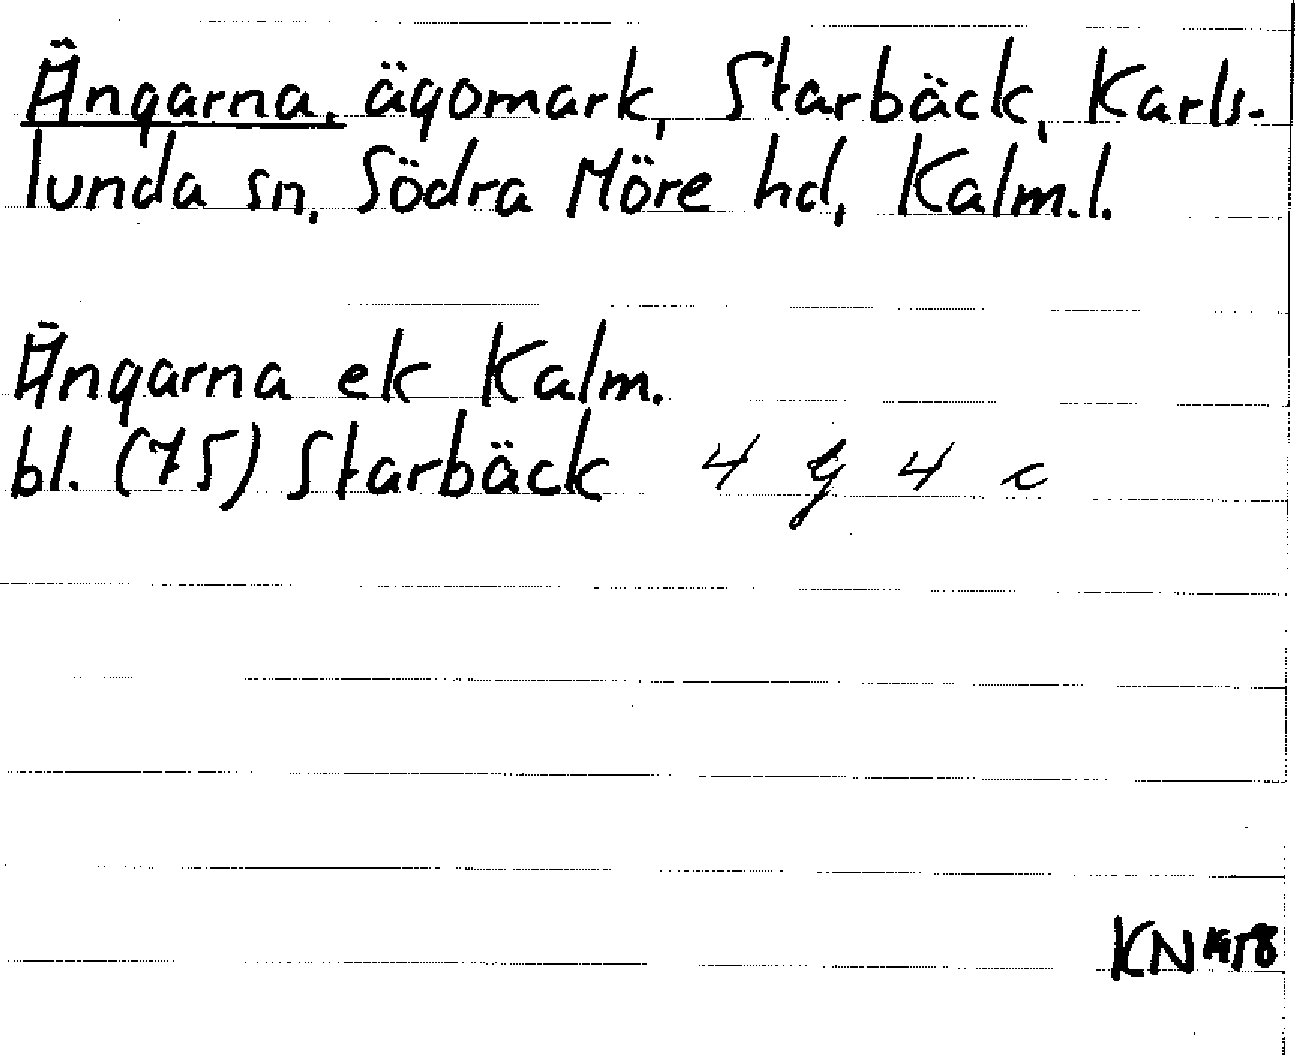 Ängarna, ägomark, Starbäck, Karls-
lunda sn, Södra Möre hd, Kalm.l.
Ängarna ek Kalm.
bl. (75) Starbäck 4 G 4 c
KN